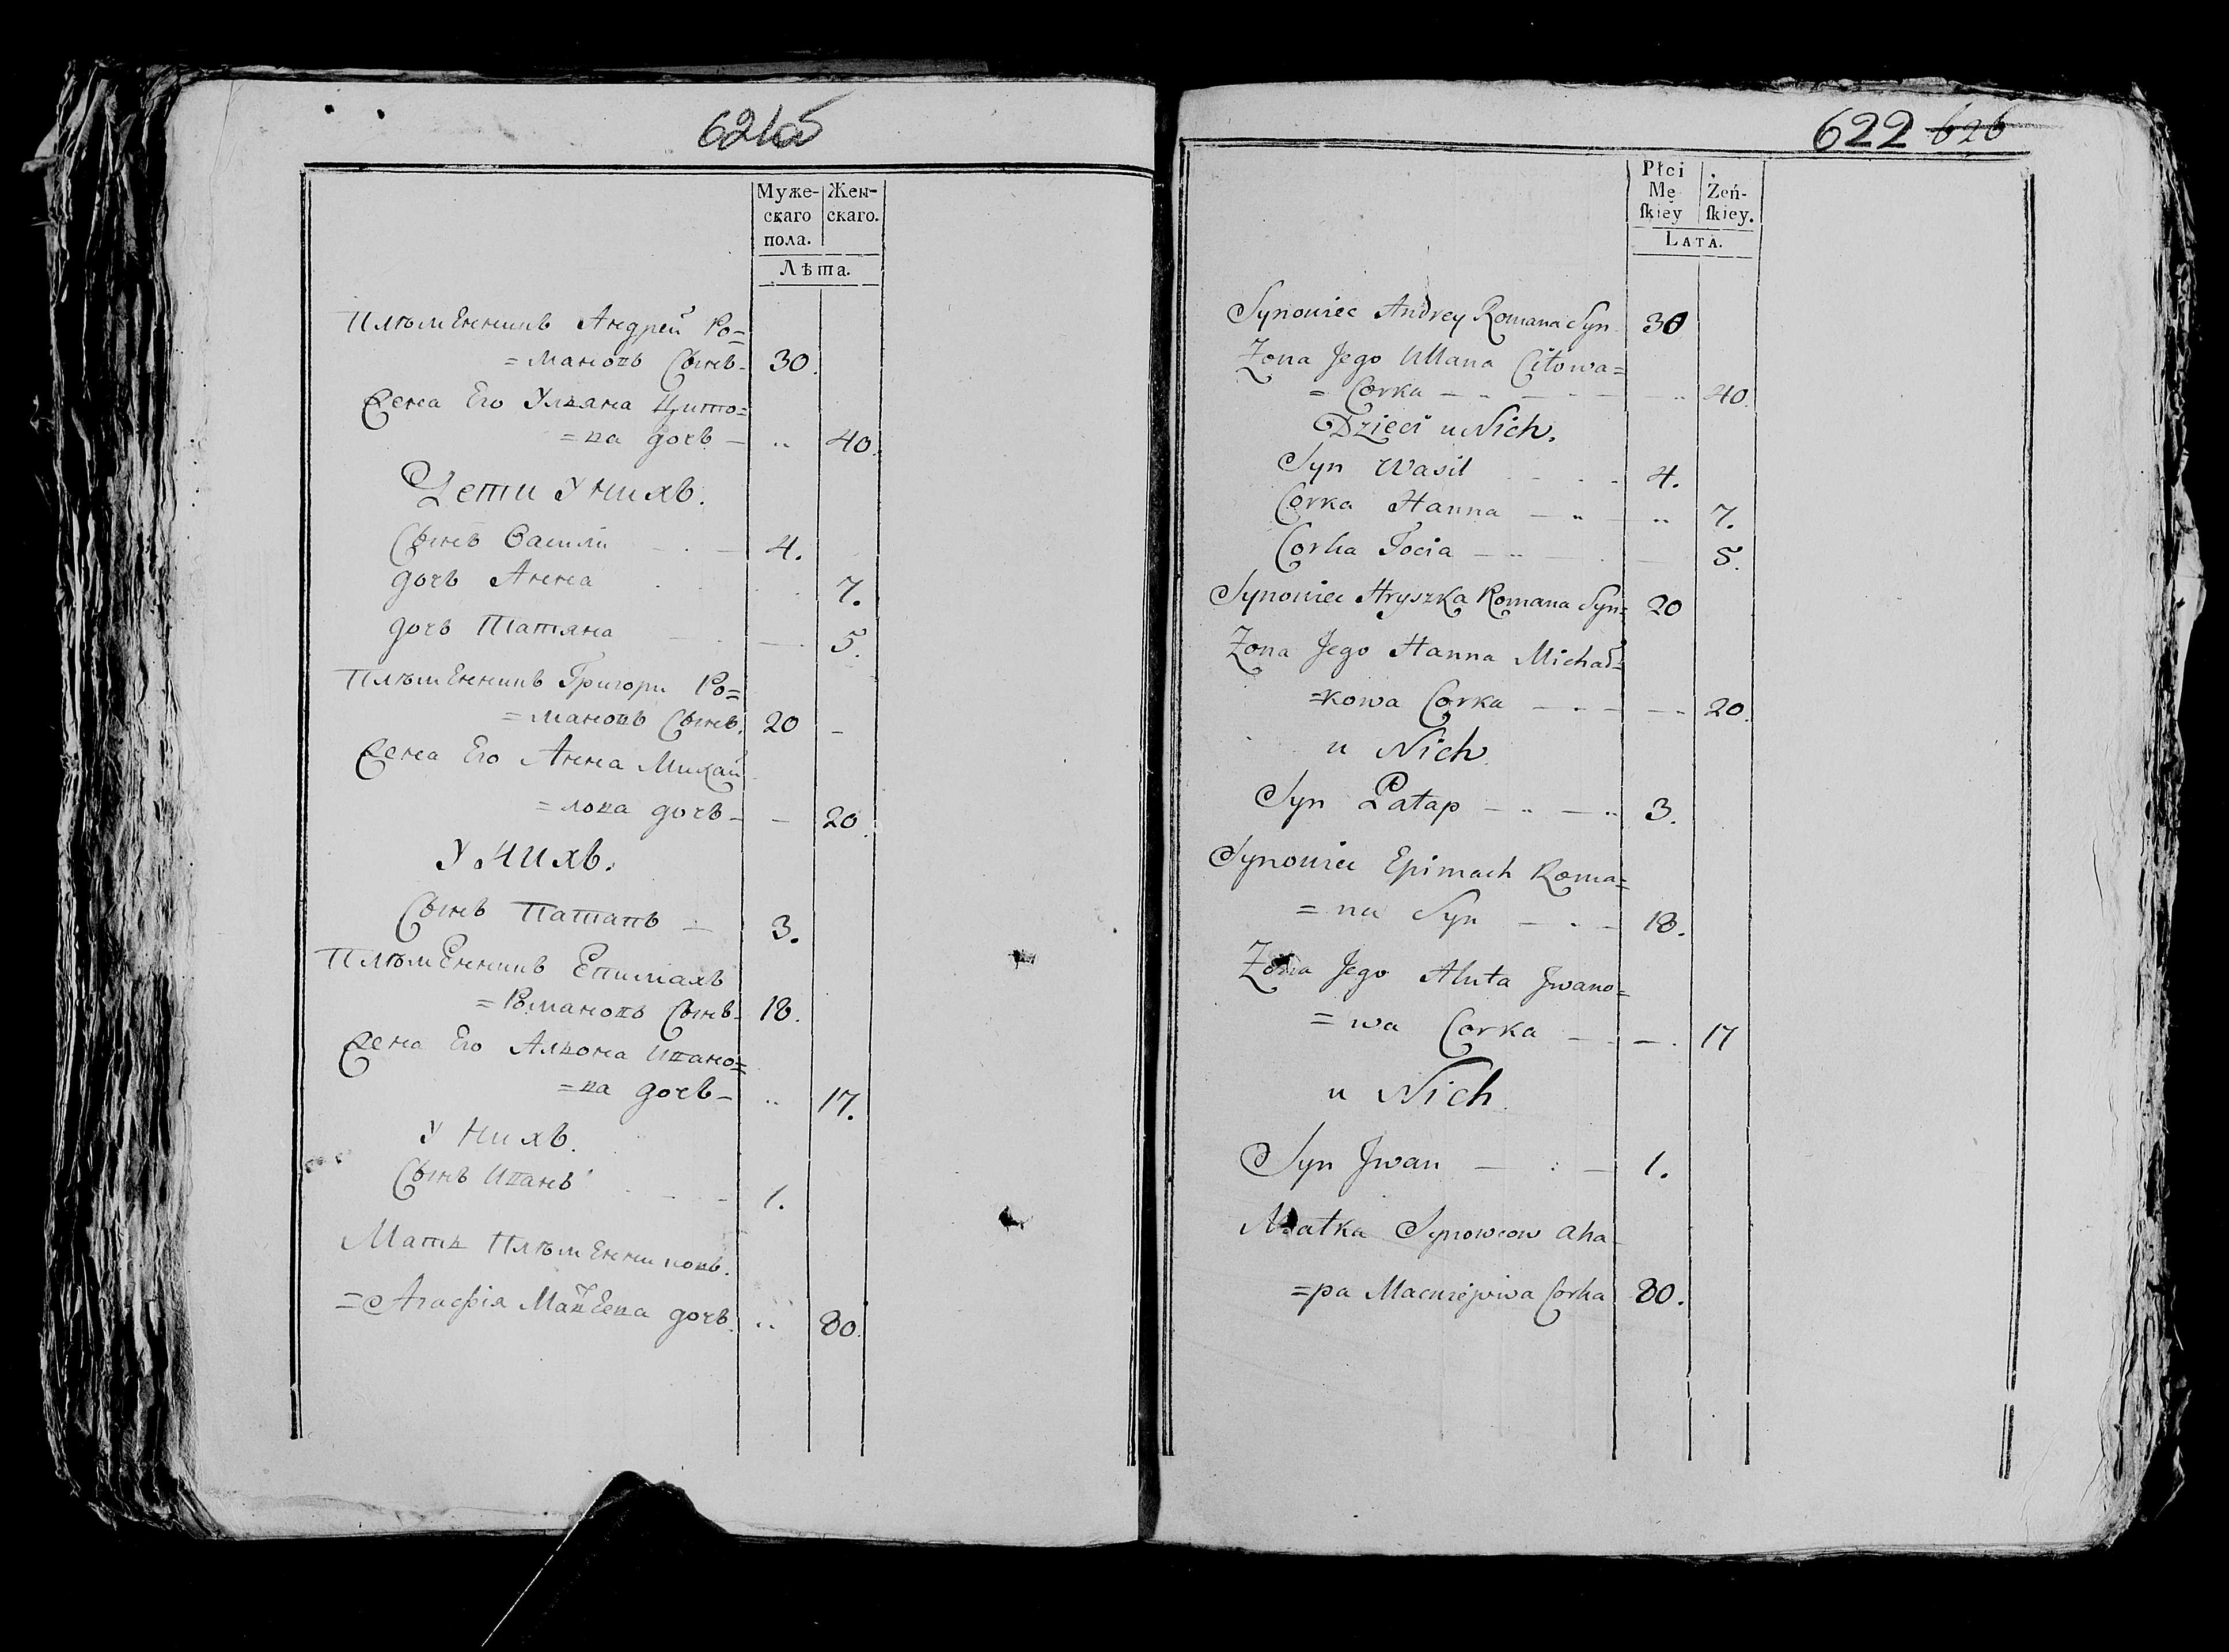 621об
Муже-
скаго
пола.
Жен-
скаго.
Лѣта.
Плѣменникъ Андрей Ро=
=мановъ Сынъ - 30.
Жена Его Ульяна Цито=
=ва дочь - 40.
Дети У нихъ.
Сынъ Васили - 4.
дочь Анна 7.
дочь Татяна 5.
Плѣменникъ Григори Ро=
=мановъ Сынъ. 20 -
Жена Его Анна Михай
=лова дочь - - 20.
У нихъ.
Сынъ Патапъ - 3.
Плѣменникъ Епимахъ
=Романовъ Сынъ - 18.
Жена Его Альона Ивано=
=ва дочь - 17.
У нихъ.
Сынъ Иванъ - 1.
Мать Плѣменниковъ.
=Агафія дочь. 80.
622 626
Płci
Mę
ſkiey
Żeń-
ſkiey.
LATA.
Synowiec Andrey Romana Syn 30
Zona Jego Ullana Citowa=
= Corka - 40.
Dzieci u Nich.
Syn Wasil 4.
Corka Hanna - 7.
Corka Tocia - 5.
Synowiec Hryszka Romana Syn= 20
Zona Jego Hanna Michał=
=kowa Corka - 20.
u Nich.
Syn Patap - 3.
Synowiec Epimach Roma=
=na Syn - 18.
Zona Jego Aluta Jwano=
=wa Corka - 17
u Nich.
Syn Jwan - 1.
Matka Synowcow Aha
=pa Corka 80.